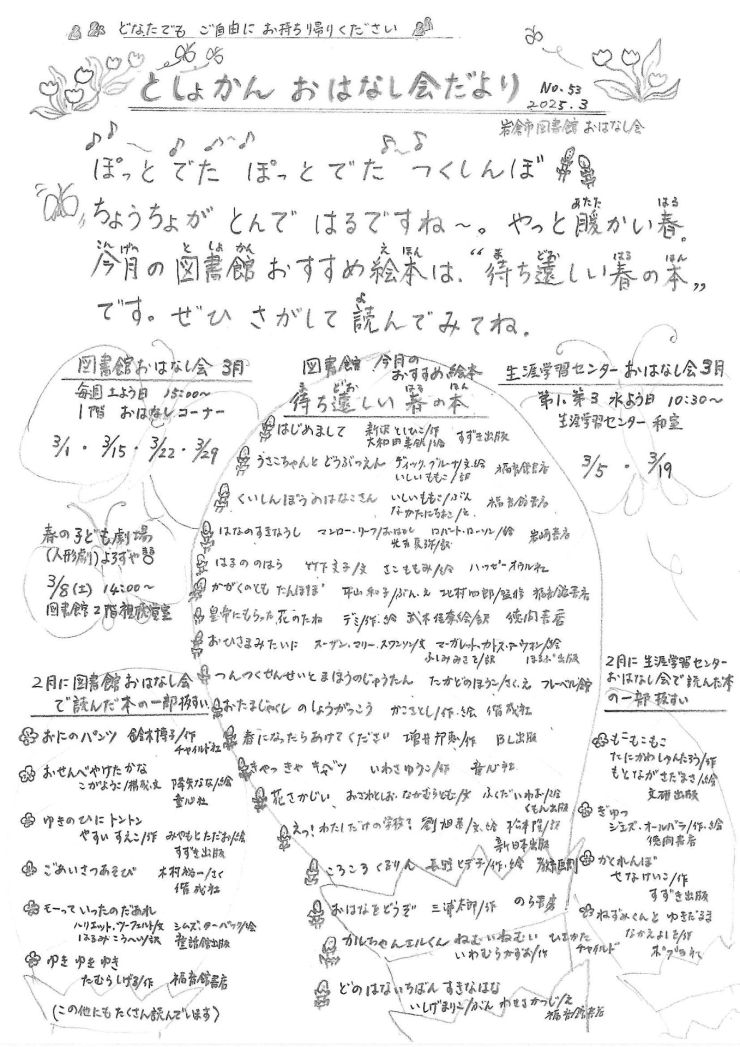 どなたでも ご自由に お持ち帰りください
としょかん おはなし会だより
No.53
2025.3
岩倉市図書館 おはなし会
ぽっと でた ぽっと でた つくしんぼ
ちょうちょが とんで はるですね～。やっと暖かい春。
今月の図書館おすすめ絵本は、“待ち遠しい春の本”
です。ぜひ さがして 読んでみてね。
図書館おはなし会 3月
毎週土よう日 15:00～
1階 おはなしコーナー
3/1・3/15・3/22・3/29
春の子ども劇場
(人形劇)よろずや
3/8(土) 14:00～
図書館2階視聴覚室
図書館 今月の
おすすめ絵本
待ち遠しい 春の本
はじめまして 新沢としひこ/作
大和田美鈴/絵 すずき出版
うさこちゃんと どうぶつえん ディック・ブルーナ/文・絵
いしいももこ/訳 福音館書店
くいしんぼうのはなこさん いしいももこ/ぶん
なかたにちよこ/え 福音館書店
はなのすきなうし マンロー・リーフ/おはなし ロバート・ローソン/絵
光吉夏弥/訳 岩崎書店
はるののはら 竹下文子/文 さこももみ/絵 ハッピーオウル社
かがくのとも たんぽぽ 平山和子/ぶん・え 北村四郎/監修 福音館書店
皇帝にもらった花のたね デミ/作・絵 武本佳奈絵/訳 徳間書店
おひさまみたいに スーザン・マリー・スワンソン/文 マーガレット・カドス・アーウォン/絵
ふしみみさを/訳 ほるぷ出版
つんつくせんせいとまほうのじゅうたん たかどのほうこ/さく・え フレーベル館
おたまじゃくしのしょうがっこう かこさとし/作・絵 偕成社
春になったらあけてください 増井邦恵/作 BL出版
きゃっきゃキャベツ いわさゆうこ/作 童心社
花さかじい おざわとしお・なかむらともこ/文 ふくだいわお/絵
くもん出版
えっ!わたしだけの学校? 劉旭恭/文・絵
新日本出版
ころころくるりん 長野ヒデ子/作・絵
おはなをどうぞ 三浦太郎/作 のら書房
カルちゃんエルくん ねむいねむい ひさかた
いわむらかずお/作 チャイルド
どのはないちばん すきなはな
いしげまりこ/ぶん わきさかかつじ/え
福音館書店
生涯学習センター おはなし会3月
第1、第3 水よう日 10:30～
生涯学習センター 和室
3/5・3/19
2月に図書館おはなし会
で読んだ本の一部抜すい
おにのパンツ 鈴木博子/作
チャイルド社
おせんべやけたかな
こがようこ/構成・文 降矢なな/絵
童心社
ゆきのひに トントン
やすいすえこ/作 みやもとただお/絵
すずき出版
ごあいさつあそび 木村裕一/さく
偕成社
モーっていったのだあれ
ハリエット・ツィーフェルト/文 シムズ・ターバック/絵
はるみこうへい/訳 童話館出版
ゆきゆきゆき
たむらしげる/作 福音館書店
(この他にもたくさん読んでいます)
2月に 生涯学習センター
おはなし会で読んだ本
の一部 抜すい
もこもこもこ
たにかわしゅんたろう/作
もとながさだまさ/絵
文研出版
ぎゅっ
ジェズ・オールバラ/作・絵
徳間書店
かとれんぼ
せなけいこ/作
すずき出版
ねずみくんと ゆきだるま
なかえよしを/作
ポプラ社